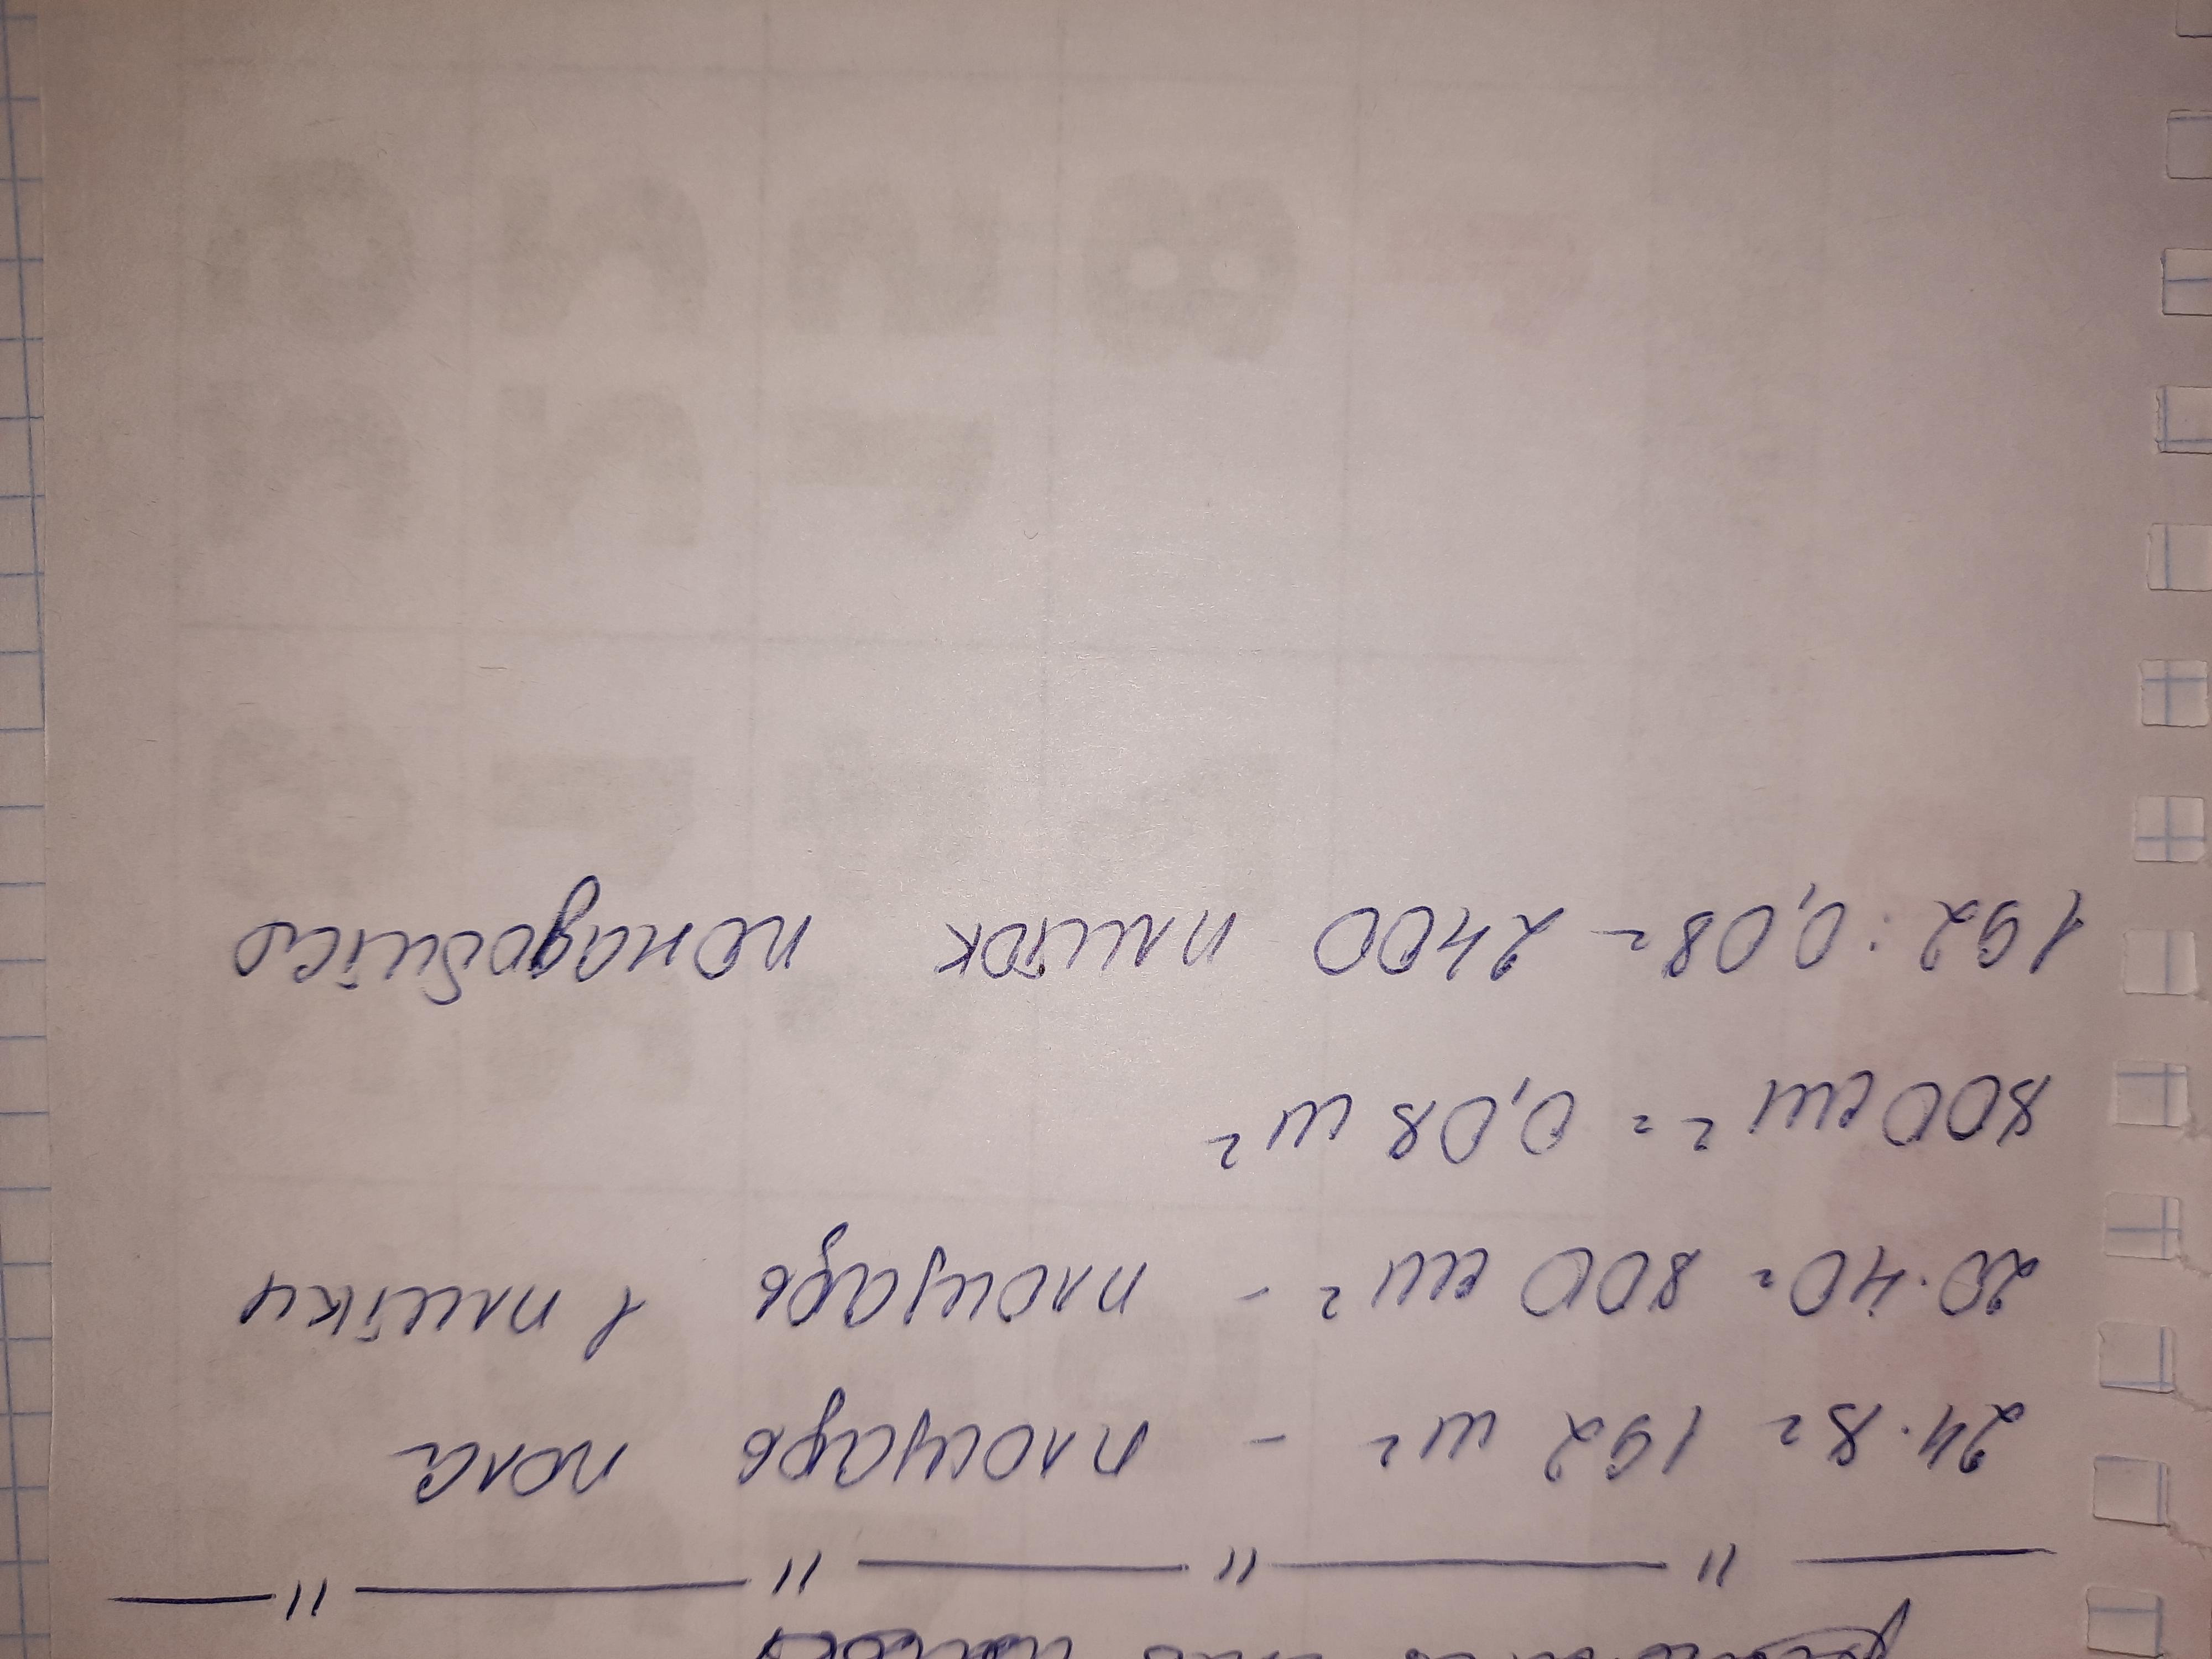 — " — " — " — " —
24·8= 192 м² - площадь пола
20·40= 800 см² - площадь 1 плитки
800 см² = 0,08 м²
192 : 0,08 = 2400 плиток понадобится